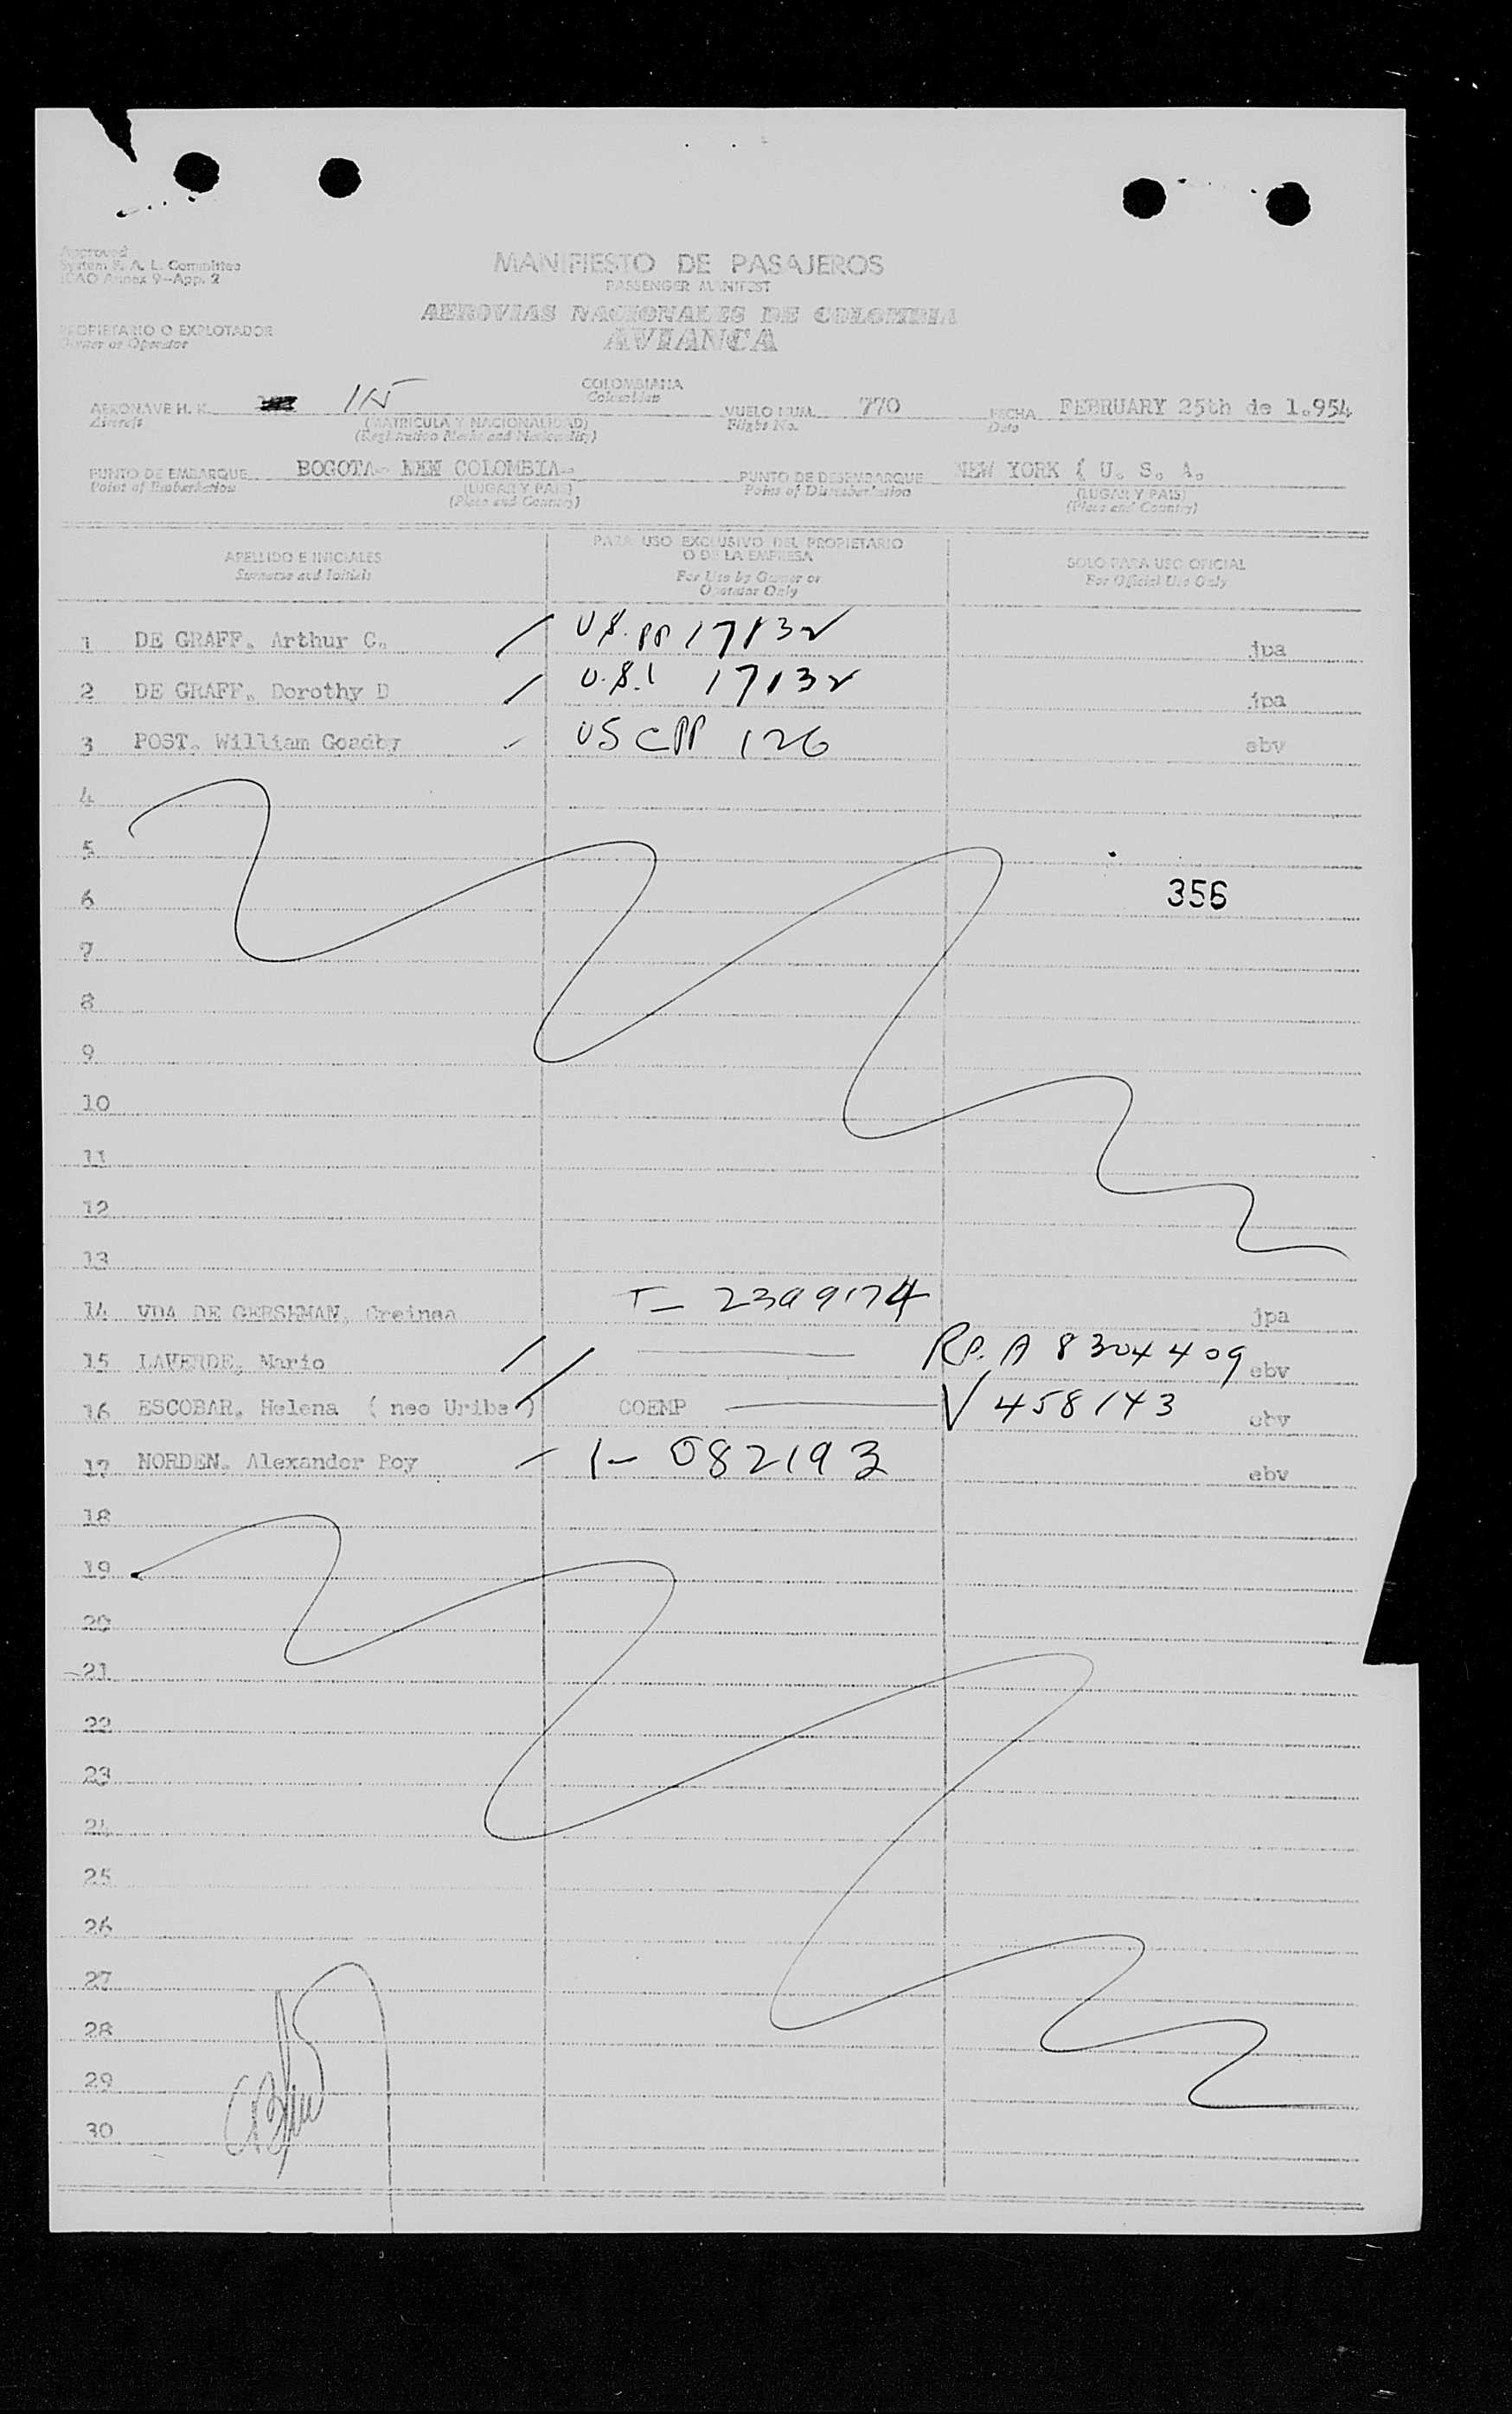 Approved
System F. A. L. Committee
ICAO Annex 9-App. 2
MANIFIESTO DE PASAJEROS
PASSENGER MANIFEST
AEROVIAS NACIONALES DE COLOMBIA
AVIANCA
PROPIETARIO O EXPLOTADOR
Owner or Operator
COLOMBIANA
Colombian
AERONAVE H. K.
Aircraft
(MATRICULA Y NACIONALIDAD)
(Registration Marks and Nationality)
VUELO NUM. 770
Flight No.
FECHA FEBRUARY 25th de 1.954
Date
PUNTO DE EMBARQUE BOGOTA- COLOMBIA-
Point of Embarkation
(LUGAR Y PAIS)
(Place and Country)
PUNTO DE DESEMBARQUE NEW YORK ( U. S. A.
Point of Disembarkation
(LUGAR Y PAIS)
(Place and Country)
APELLIDO E INICIALES
Surname and Initials
PARA USO EXCLUSIVO DEL PROPIETARIO
O DE LA EMPRESA
For Use by Owner or
Operator Only
SOLO PARA USO OFICIAL
For Official Use Only
1 DE GRAFF. Arthur C. jpa
2 DE GRAFF. Dorothy D jpa
3 POST. William Goadby US CPP 126 ebv
4
5
6 356
7
8
9
10
11
12
13
14 VDA DE GERSHMAN, jpa
15 LAVERDE, Mario RP. A 8304409 ebv
16 ESCOBAR. Helena ( neo Uribe ) COEMP V 458143 ebv
17 NORDEN. Alexander Roy 1- 082193 ebv
18
19
20
21
22
23
24
25
26
27
28
29
30